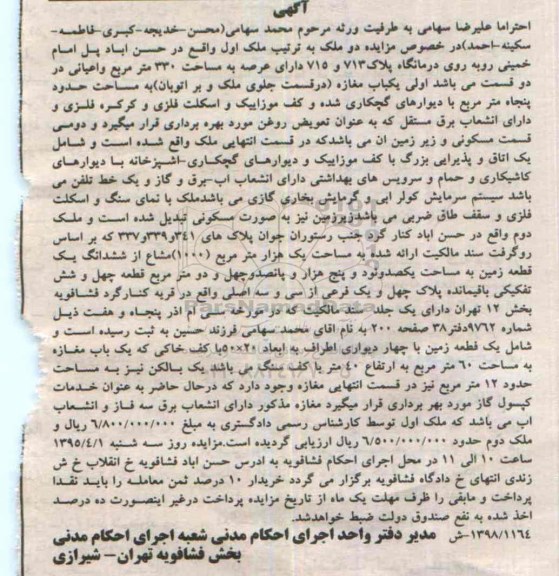 آگهی
احتراما علیرضا سهامی به طرفیت ورثه مرحوم محمد سهامی(محسن-خدیجه-کبری-فاطمه-
سکینه-احمد)در خصوص مزایده دو ملک به ترتیب ملک اول واقع در حسن اباد پل امام
خمینی روبه روی درمانگاه پلاک۷۱۳ و ۷۱۵ دارای عرصه به مساحت ۳۳۰ متر مربع واعیانی در
دو قسمت می باشد اولی یکباب مغازه (درقسمت جلوی ملک و بر اتوبان)به مساحت حدود
پنجاه متر مربع با دیوارهای گچکاری شده و کف موزاییک و اسکلت فلزی و کرکره فلزی و
دارای انشعاب برق مستقل که به عنوان تعویض روغن مورد بهره برداری قرار میگیرد و دومی
قسمت مسکونی و زیر زمین ان می باشدکه در قسمت انتهایی ملک واقع شده است و شامل
یک اتاق و پذیرایی بزرگ با کف موزاییک و دیوارهای گچکاری-اشپزخانه با دیوارهای
کاشیکاری و حمام و سرویس های بهداشتی دارای انشعاب اب-برق و گاز و یک خط تلفن می
باشد سیستم سرمایش کولر ابی و گرمایش بخاری گازی می باشدملک با نمای سنگ و اسکلت
فلزی و سقف طاق ضربی می باشدزیرزمین نیز به صورت مسکونی تبدیل شده است و ملک
دوم واقع در حسن اباد کنار گرد جنب رستوران جوان پلاک های ۳۴۱و۳۳۹و۳۳۷ که بر اساس
روگرفت سند مالکیت ارائه شده به مساحت یک هزار متر مربع (۱۰۰۰)مشاع از ششدانگ یک
قطعه زمین به مساحت یکصدونود و پنج هزار و پانصدوچهل و دو متر مربع قطعه چهل و شش
تفکیکی باقیمانده پلاک چهل و یک فرعی از سی و سه اصلی واقع در قریه کنارگرد فشافویه
بخش ۱۲ تهران دارای یک جلد سند مالکیت که در مورخه سی ام اذر پنجاه و هفت ذیل
شماره ۹۷۶۲دفتر۳۸ صفحه ۲۰۰ به نام اقای محمد سهامی فرزند حسین به ثبت رسیده است و
شامل یک قطعه زمین با چهار دیواری اطراف به ابعاد ۲۰×۵۰با کف خاکی که یک باب مغازه
به مساحت ۶۰ متر مربع به ارتفاع ۴۰متر با کف سنگ می باشد یک بالکن نیز به مساحت
حدود ۱۲ متر مربع نیز در قسمت انتهایی مغازه وجود دارد که درحال حاضر به عنوان خدمات
کپسول گاز مورد بهر برداری قرار میگیرد مغازه مذکور دارای انشعاب برق سه فاز و انشعاب
اب می باشد که ملک اول توسط کارشناس رسمی دادگستری به مبلغ ۶/۸۰۰/۰۰۰/۰۰۰ ریال و
ملک دوم حدود ۶/۵۰۰/۰۰۰/۰۰۰ ریال ارزیابی گردیده است.مزایده روز سه شنبه ۱۳۹۵/۴/۱
ساعت ۱۰ الی ۱۱ در محل اجرای احکام فشافویه به ادرس حسن اباد فشافویه خ انقلاب خ ش
زندی انتهای خ دادگاه فشافویه برگزار می گردد خریدار ۱۰ درصد ثمن معامله را باید نقدا
پرداخت و مابقی را ظرف مهلت یک ماه از تاریخ مزایده پرداخت درغیر اینصورت ده درصد
اخذ شده به نفع صندوق دولت ضبط خواهدشد.
۱۳۹۸/۱۱۶۴-ش مدیر دفتر واحد اجرای احکام مدنی شعبه اجرای احکام مدنی
بخش فشافویه تهران- شیرازی